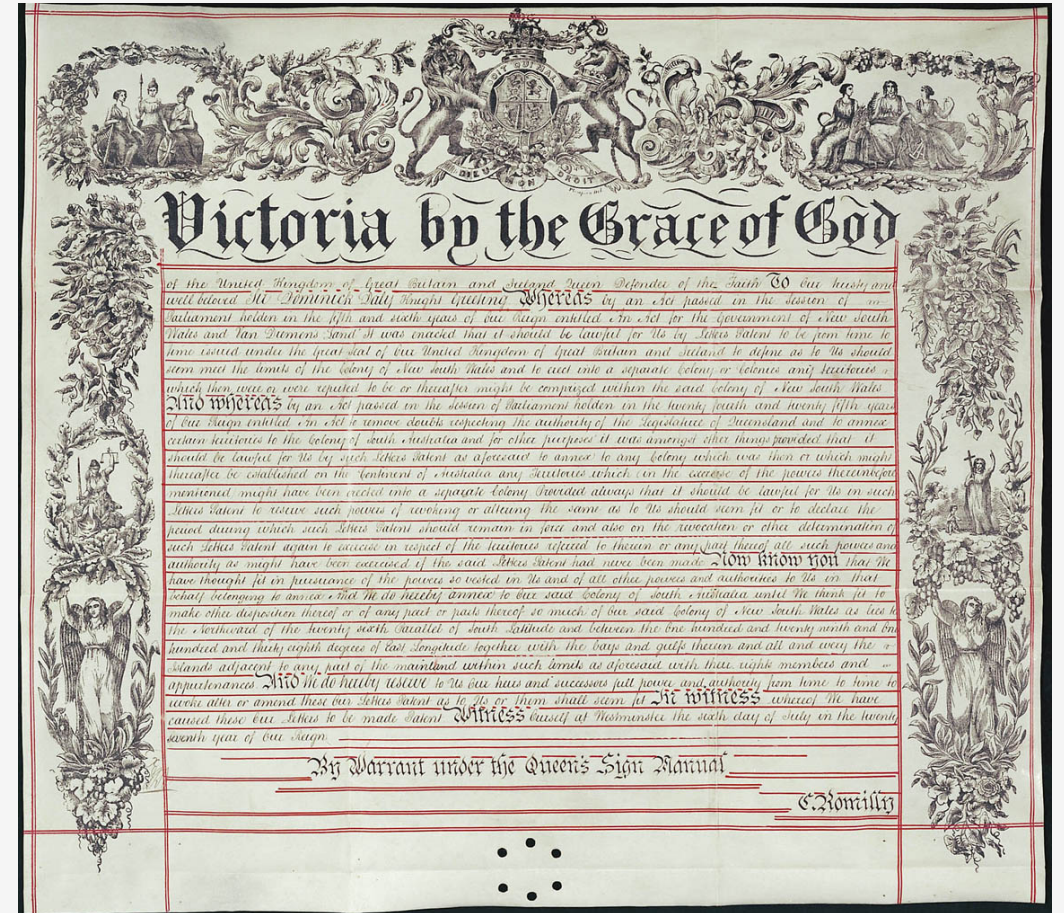 DIEU ET MON DROIT
Victoria by the Grace of God
of the United Kingdom of Great Britain and Ireland Queen Defender of the Faith To Our trusty and
well beloved Sir Dominick Daly Knight Greeting Whereas by an Act passed in the Session of
Parliament holden in the fifth and sixth years of Our Reign entitled An Act for the Government of New South
Wales and Van Diemens Land It was enacted that it should be lawful for Us by Letters Patent to be from time to
time issued under the Great Seal of Our United Kingdom of Great Britain and Ireland to define as to Us should
seem meet the limits of the Colony of New South Wales and to erect into a separate Colony or Colonies any territories
which then were or were reputed to be or thereafter might be comprized within the said Colony of New South Wales
And whereas by an Act passed in the Session of Parliament holden in the twenty fourth and twenty fifth years
of Our Reign entitled An Act to remove doubts respecting the authority of the Legislature of Queensland and to annex
certain territories to the Colony of South Australia and for other purposes it was amongst other things provided that it
should be lawful for Us by such Letters Patent as aforesaid to annex to any Colony which was then or which might
thereafter be established on the Continent of Australia any Territories which in the exercise of the powers thereinbefore
mentioned might have been erected into a separate Colony Provided always that it should be lawful for Us in such
Letters Patent to reserve such powers of revoking or altering the same as to Us should seem fit or to declare the
period during which such Letters Patent should remain in force and also on the revocation or other determination of
such Letters Patent again to exercise in respect of the territories referred to therein or any part thereof all such powers and
authority as might have been exercised if the said Letters Patent had never been made Now know you that We
have thought fit in pursuance of the powers so vested in Us and of all other powers and authorities to Us in that
behalf belonging to annex And We do hereby annex to Our said Colony of South Australia until We think fit to
make other disposition thereof or of any part or parts thereof so much of Our said Colony of New South Wales as lies to
the Northward of the twenty sixth Parallel of South Latitude and between the One hundred and twenty ninth and One
hundred and thirty eighth degrees of East Longitude together with the bays and gulfs therein and all and every the
Islands adjacent to any part of the mainland within such limits as aforesaid with their rights members and
appurtenances And We do hereby reserve to Us Our heirs and successors full power and authority from time to time to
revoke alter or amend these Our Letters Patent as to Us or them shall seem fit In witness whereof We have
caused these Our Letters to be made Patent Witness Ourself at Westminster the sixth day of July in the twenty
seventh year of Our Reign
By Warrant under the Queens Sign Manual
C. Romilly